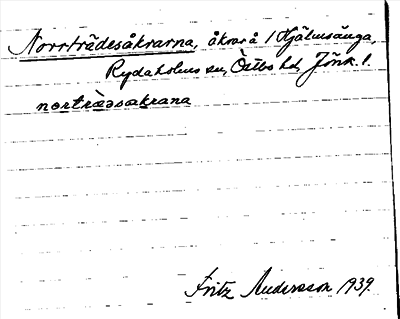 Norrträdesåkrarna, åkrar å 1 Hjälmsänga,
Rydaholms sn, Östbo hd, Jönk. l.
norträdsakrana
Fritz Andersson 1939.